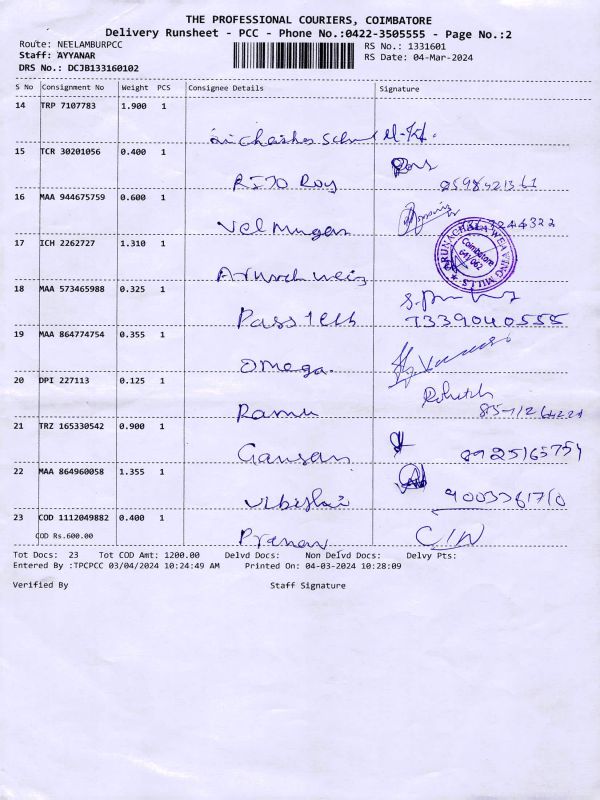 THE PROFESSIONAL COURIERS, COIMBATORE
Delivery Runsheet - PCC - Phone No.:0422-3505555 - Page No.:2
Route: NEELAMBURPCC RS No.: 1331601
Staff: AYYANAR RS Date: 04-Mar-2024
DRS No.: DCJB133160102
S No Consignment No Weight PCS Consignee Details Signature
14 TRP 7107783 1.900 1
15 TCR 30201056 0.400 1
RIJO Roy
16 MAA 944675759 0.600 1
Vel Murugan
17 ICH 2262727 1.310 1
ARUNACHALA WEAVING MILLS
Coimbatore
641 062
18 MAA 573465988 0.325 1
Pass Tech 7339040555
19 MAA 864774754 0.355 1
Omega.
20 DPI 227113 0.125 1
Ramu
21 TRZ 165330542 0.900 1
Gansan 8925165754
22 MAA 864960058 1.355 1
23 COD 1112049882 0.400 1
COD Rs.600.00
Pranav
Tot Docs: 23 Tot COD Amt: 1200.00 Delvd Docs: Non Delvd Docs: Delvy Pts:
Entered By :TPCPCC 03/04/2024 10:24:49 AM Printed On: 04-03-2024 10:28:09
Verified By Staff Signature